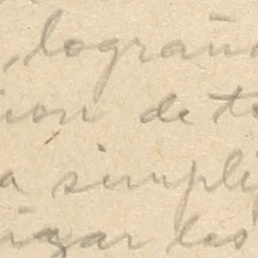 , lograña
ion de to
a simpli
izar los